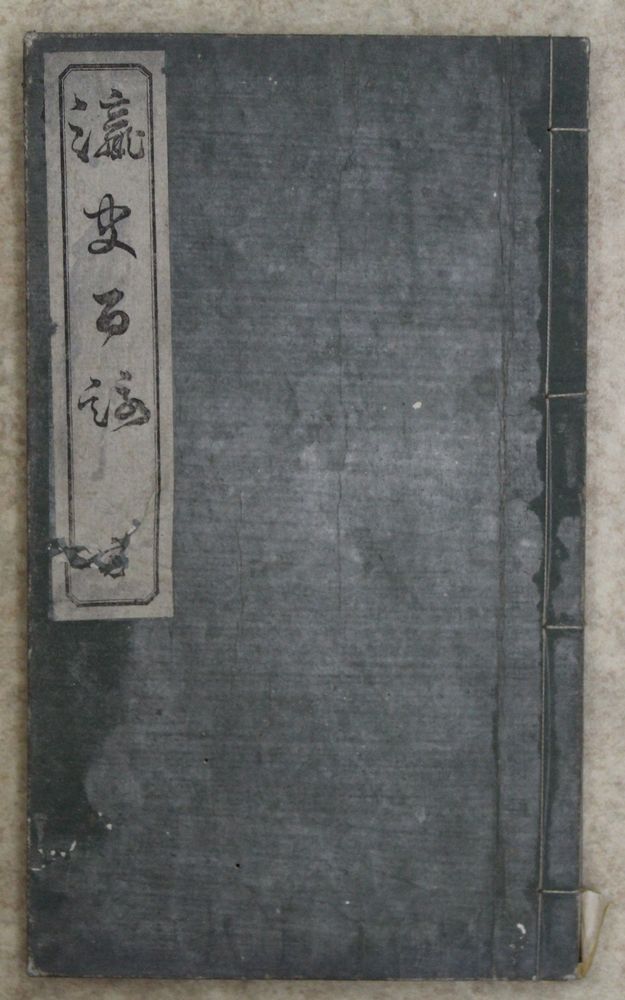 瀛史百詠